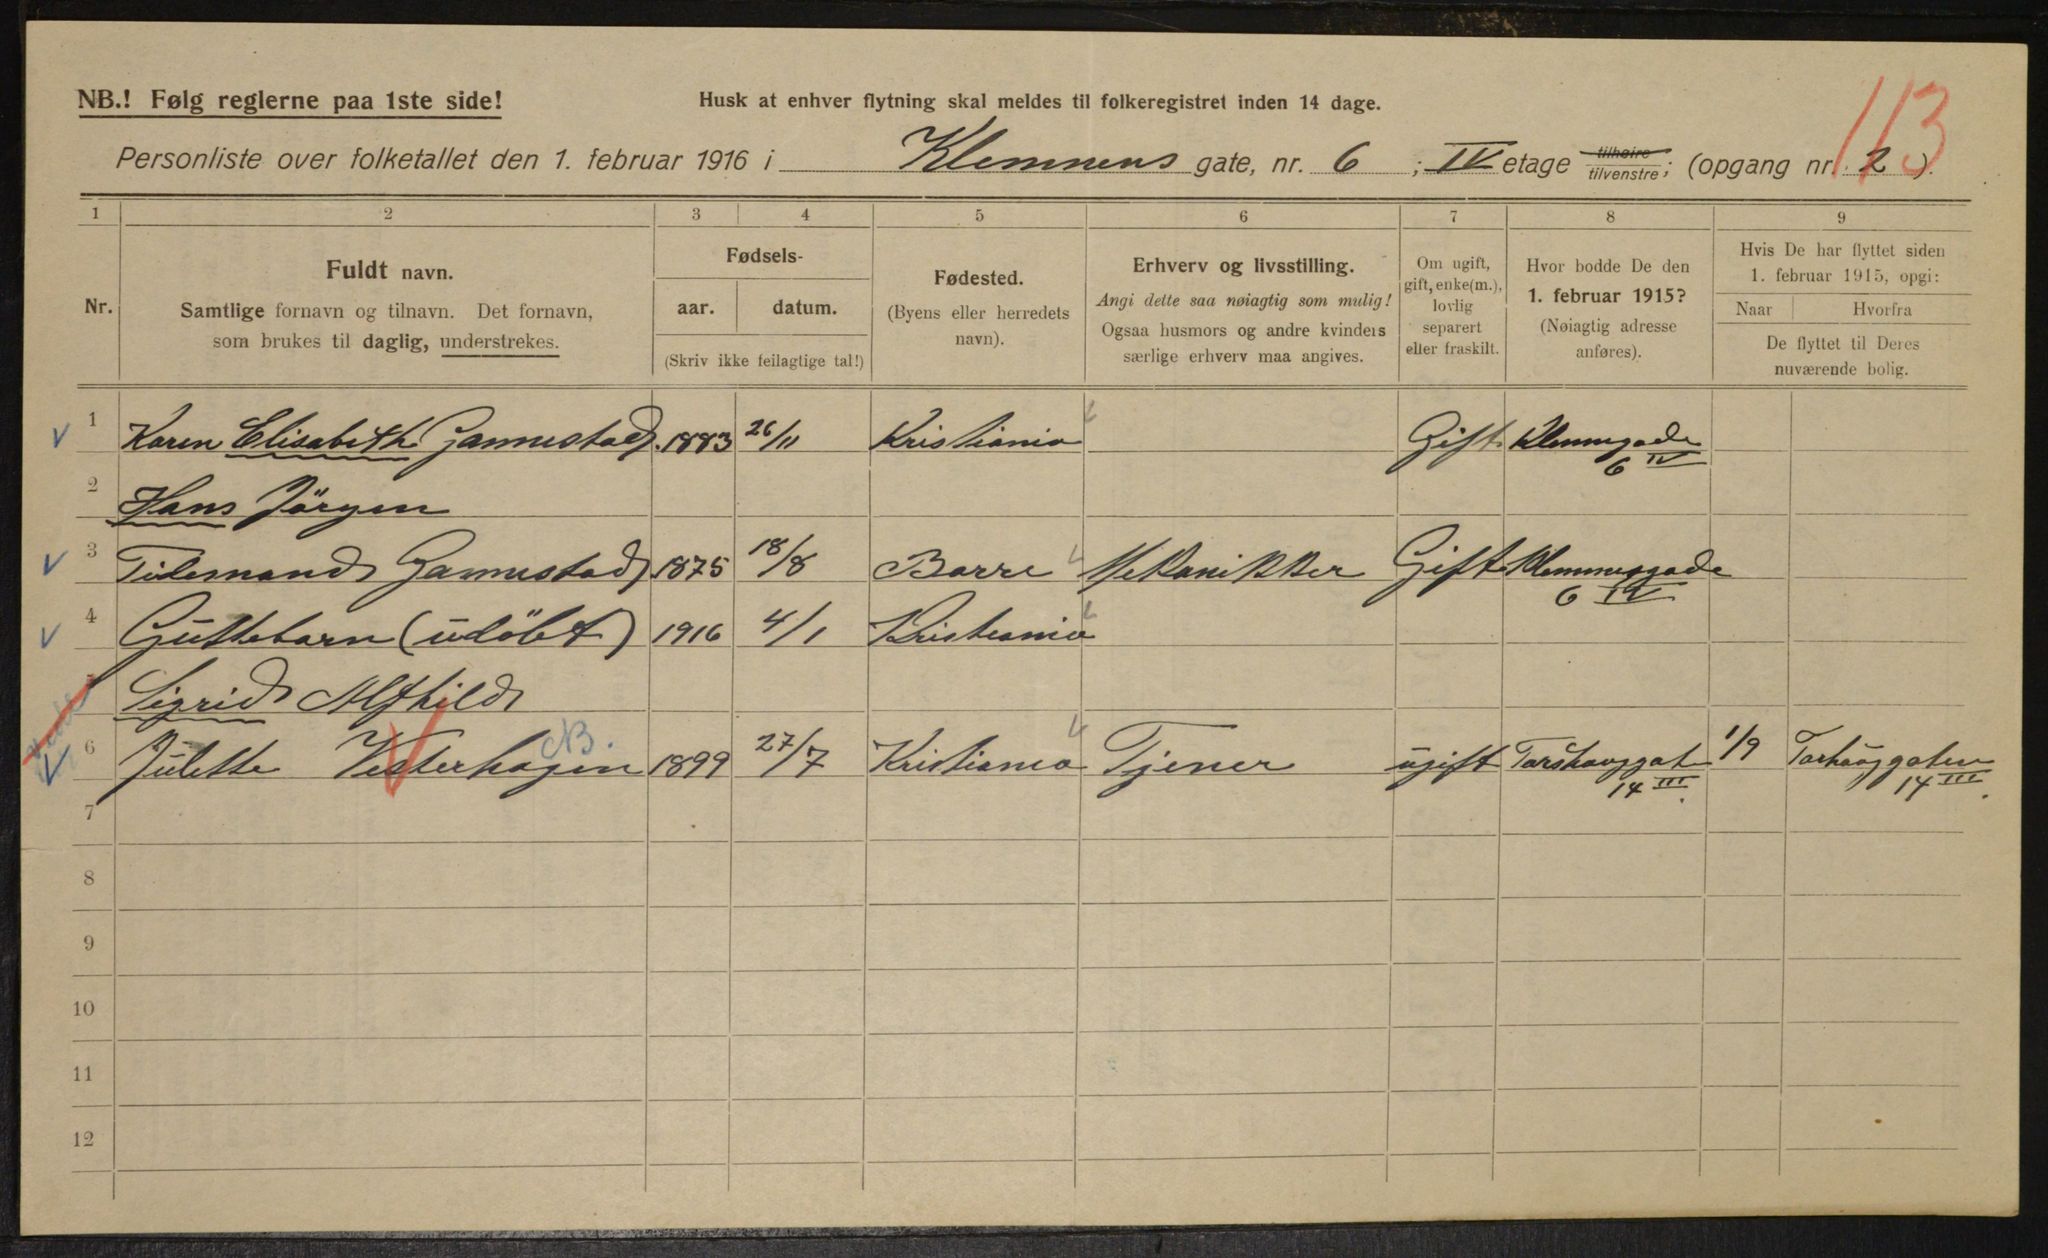 113
NB.! Følg reglerne paa 1ste side!
Husk at enhver flytning skal meldes til folkeregistret inden 14 dage.
Personliste over folketallet den 1. februar 1916 i Klemmens gate, nr. 6 ; IV etage tilhøire tilvenstre; (opgang nr. 2 ).
1 2 3 4 5 6 7 8 9
Nr.
Fuldt navn.
Samtlige fornavn og tilnavn. Det fornavn,
som brukes til daglig, understrekes.
Fødsels-
aar. datum.
(Skriv ikke feilagtige tal!)
Fødested.
(Byens eller herredets
navn).
Erhverv og livsstilling.
Angi dette saa nøiagtig som mulig!
Ogsaa husmors og andre kvinders
særlige erhverv maa angives.
Om ugift,
gift, enke(m.),
lovlig
separert
eller fraskilt.
Hvor bodde De den
1. februar 1915?
(Nøiagtig adresse
anføres).
Hvis De har flyttet siden
1. februar 1915, opgi:
Naar Hvorfra
De flyttet til Deres
nuværende bolig.
1 Karen Elisabeth Gannestad. 1883 26/11 Kristiania Gift Klemmgade
6 IV
2 Hans Jörgen
3 Tidemand Gannestad 1875 18/8 Borre Mekanikker Gift Klemmesgade
6 IV
4 Guttebarn (udöbt) 1916 4/1 Kristiania
5 Sigrid Alfhild
6 Julette Vesterhagen NB. 1899 27/7 Kristiania Tjener ugift Torshauggat 1/9 Torhauggaten
14 III. 14 III.
7
8
9
10
11
12